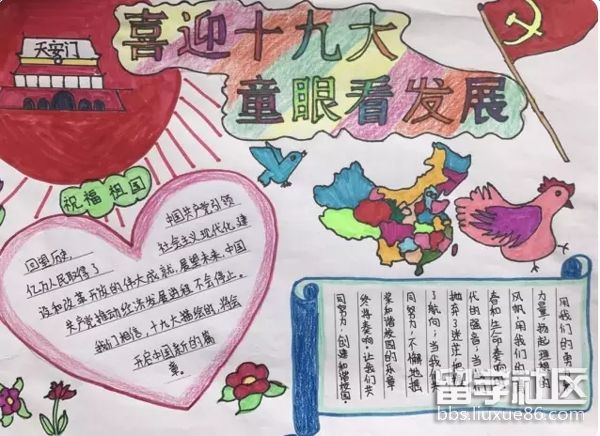 喜迎十九大
童眼看发展
天安门
祝福祖国
回望历史,
中国共产党引领
亿万人民取得了
社会主义现代化建
设和改革开放的伟大成就,展望未来,中国
共产党推动经济发展进程不会停止。
我们相信,十九大描绘的,将会
开启中国新的篇
章。
用我们的勇
力量,扬起理想的
风帆,用我们的
春和生命奏响
代的强音;当我们
抛弃了迷茫和
了航向;当我们共
同努力,不懈地拼
和谐校园的乐章
终将奏响。让我们共
同努力,创建和谐校园。
留学社区
bbs.liuxue86.com